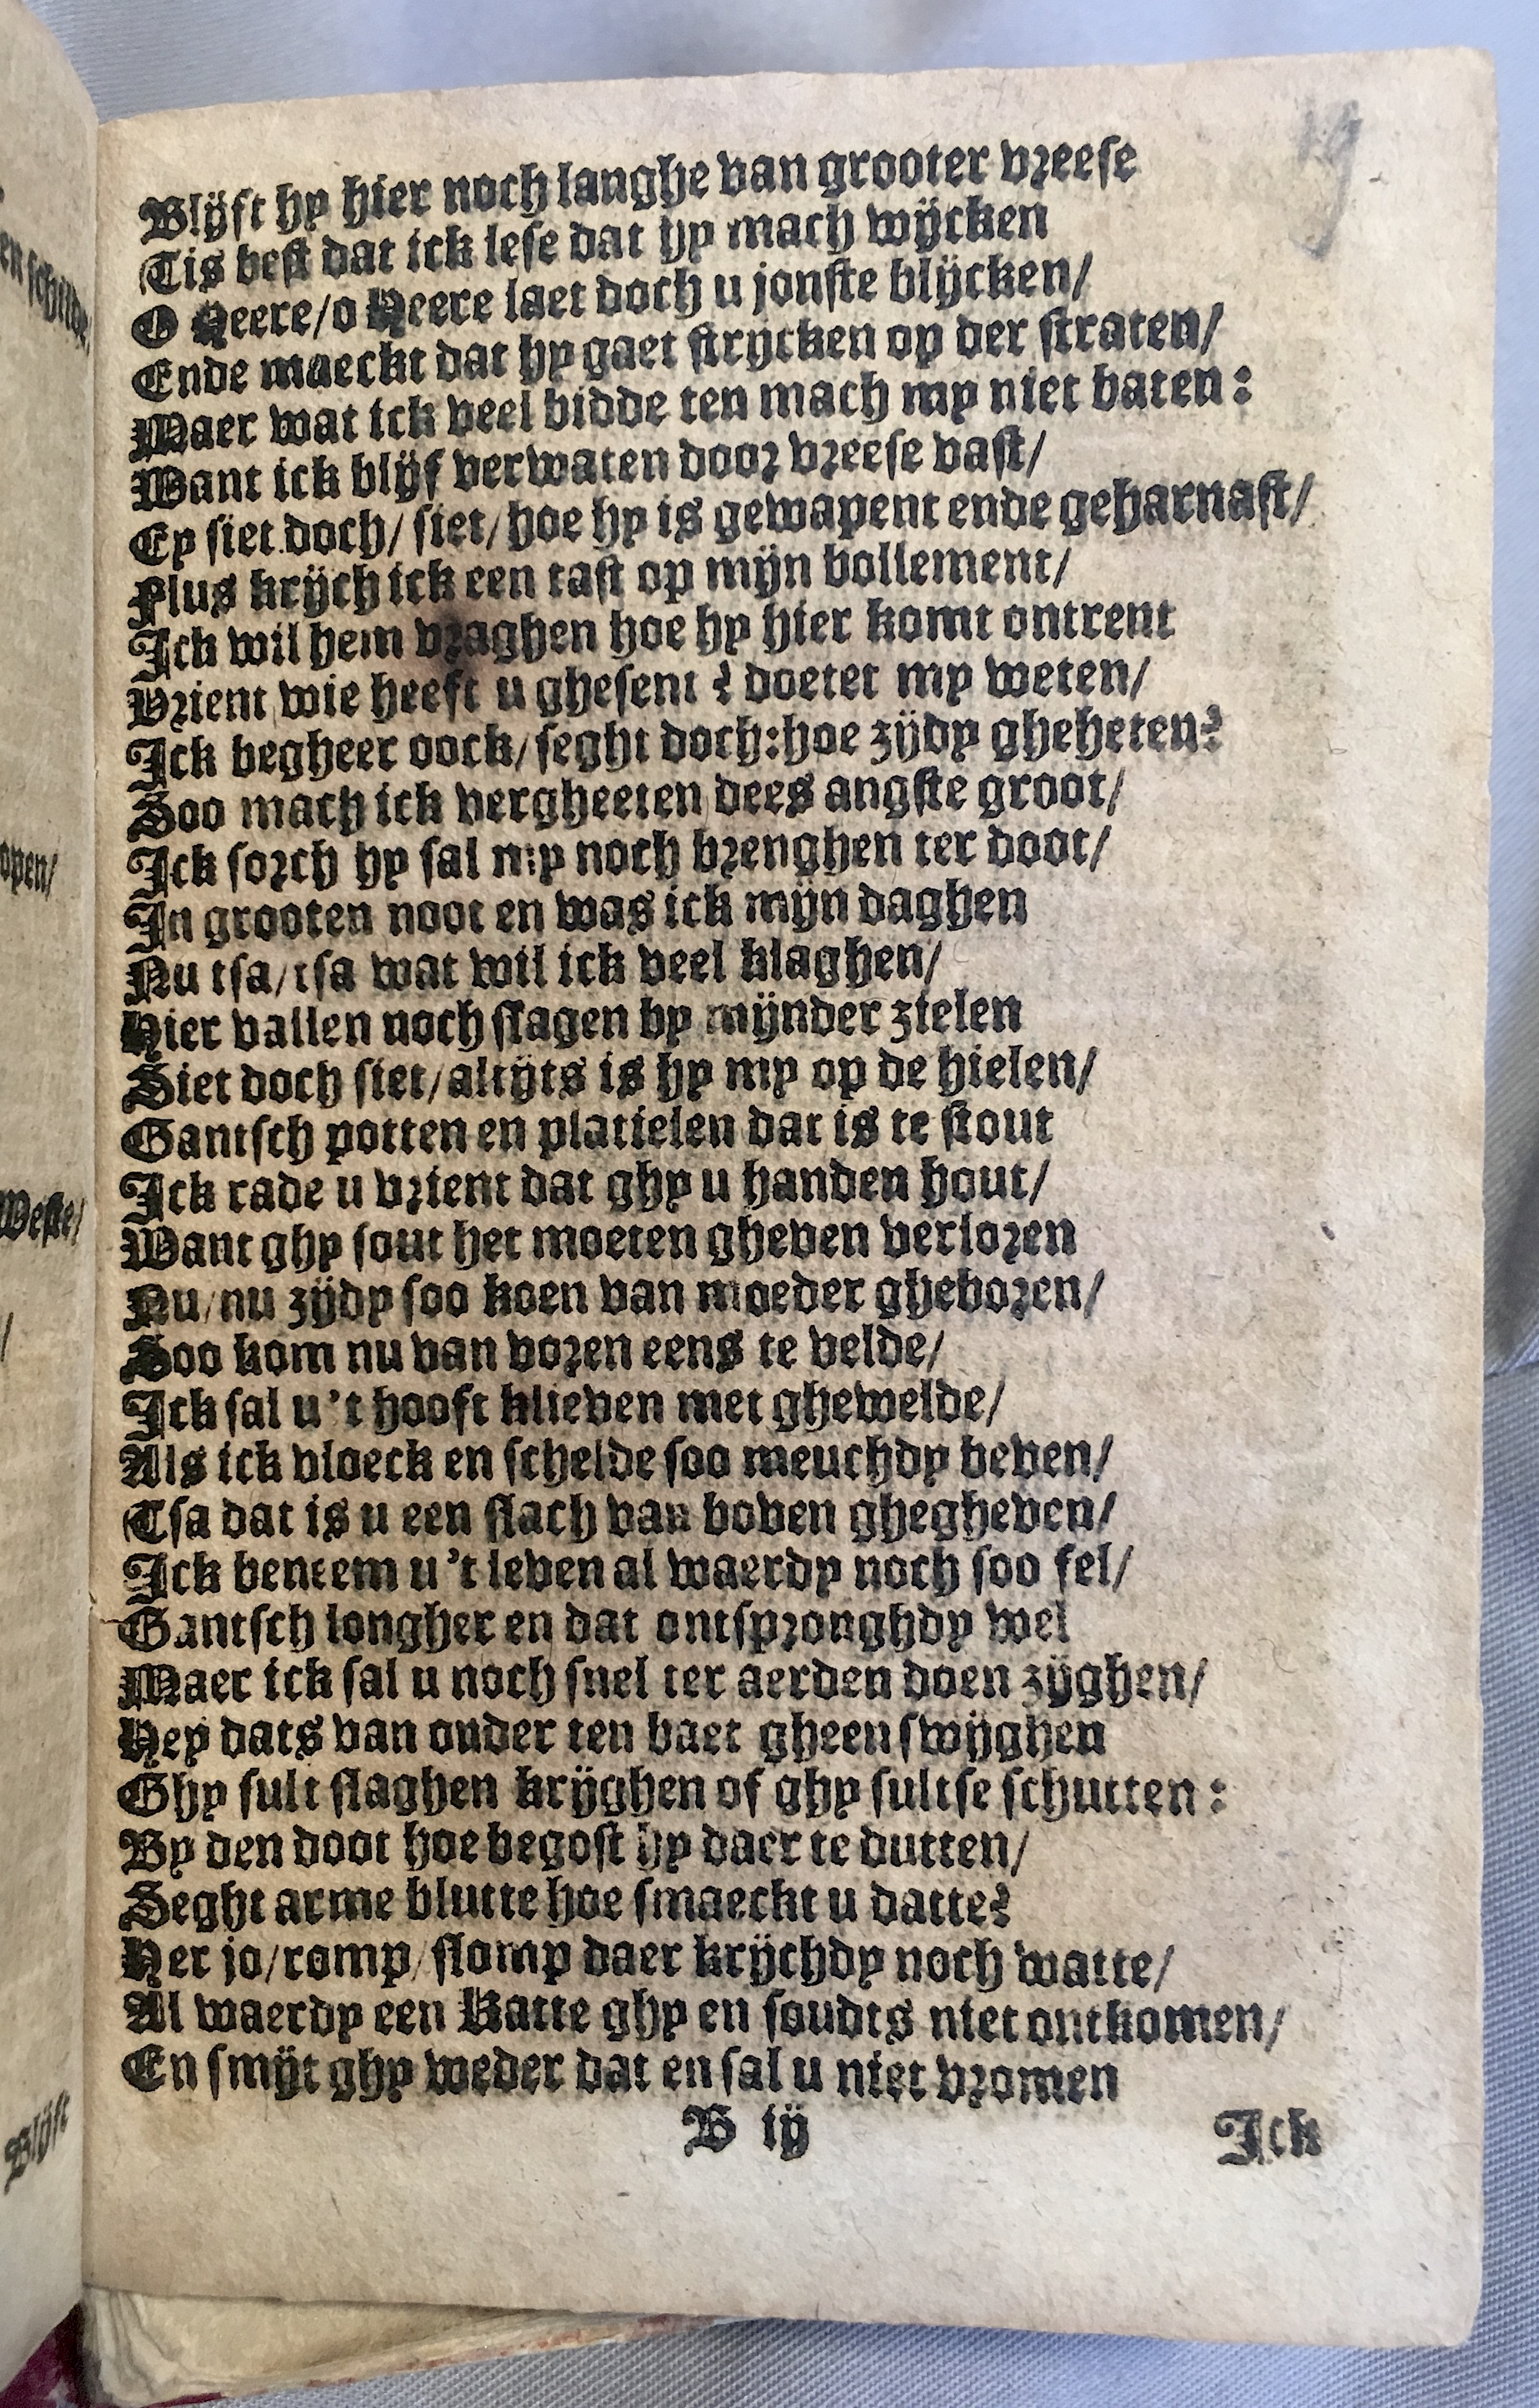 19
Blijft hy hier noch langhe van grooter vreese
Tis best dat ick lese dat hy mach wijcken
O Heere/o Heere laet doch u jonste blijcken/
Ende maeckt dat hy gaet strijcken op der straten/
Maer wat ick veel bidde ten mach my niet baten:
Want ick blijf verwaten door vreese vast/
Ey siet doch/ siet/ hoe hy is gewapent ende geharnast/
Flus krijch ick een tast op mijn bollement/
Ick wil hem vraghen hoe hy hier komt ontrent
Vrient wie heeft u ghesent? doetet my weten/
Ick begheer oock/ seght doch:hoe zijdy gheheten?
Soo mach ick vergheeten dees angste groot/
Ick sorch hy sal my noch brenghen ter doot/
In grooten noot en was ick mijn daghen
Nu tsa/tsa wat wil ick veel klaghen/
Hier vallen noch slagen by mijnder zielen
Siet doch siet/altijts is hy my op de hielen/
Gantsch potten en platielen dat is te stout
Ick rade u vrient dat ghy u handen hout/
Want ghy sout het moeten gheven verloren
Nu/nu zijdy soo koen van moeder gheboren/
Soo kom nu van voren eens te velde/
Ick sal u 't hooft klieven met ghewelde/
Als ick vloeck en schelde soo meuchdy beven/
Tsa dat is u een slach van boven ghegheven/
Ick beneem u 't leven al waerdy noch soo fel/
Gantsch longher en dat ontspronghdy wel
Maer ick sal u noch snel ter aerden doen zijghen/
Hey dats van onder ten baet gheen swijghen
Ghy sult slaghen krijghen of ghy sultse schutten:
By den doot hoe begost hy daer te dutten/
Seght arme blutte hoe smaeckt u datte?
Her jo/romp/slomp daer krijchdy noch watte/
Al waerdy een Katte ghy en soudts niet ontkomen/
En smijt ghy weder dat en sal u niet vromen
B iij
Ick
en schilde/
open/
Weste/
/
Blijft